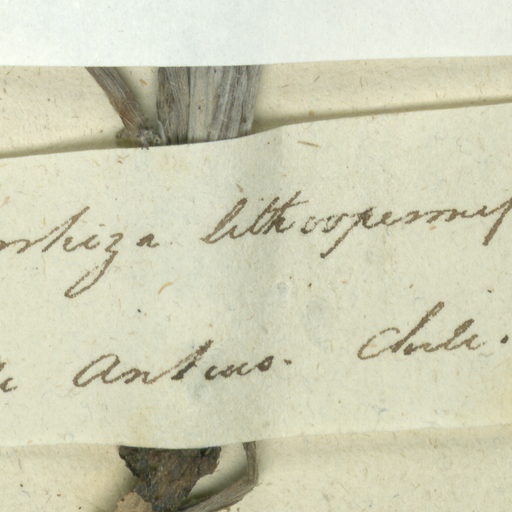 rrhiza lithoopermif
Antuco. Chile.